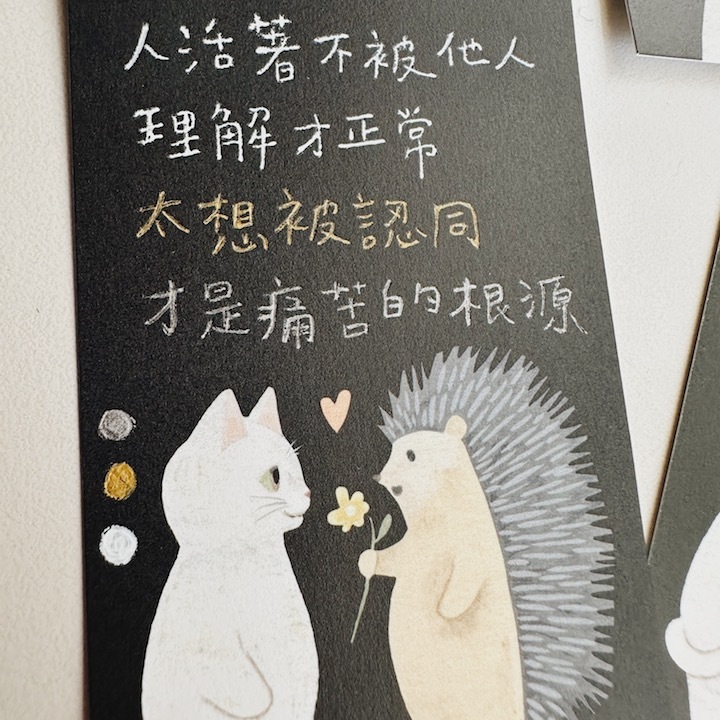 人活著不被他人
理解才正常
太想被認同
才是痛苦的根源